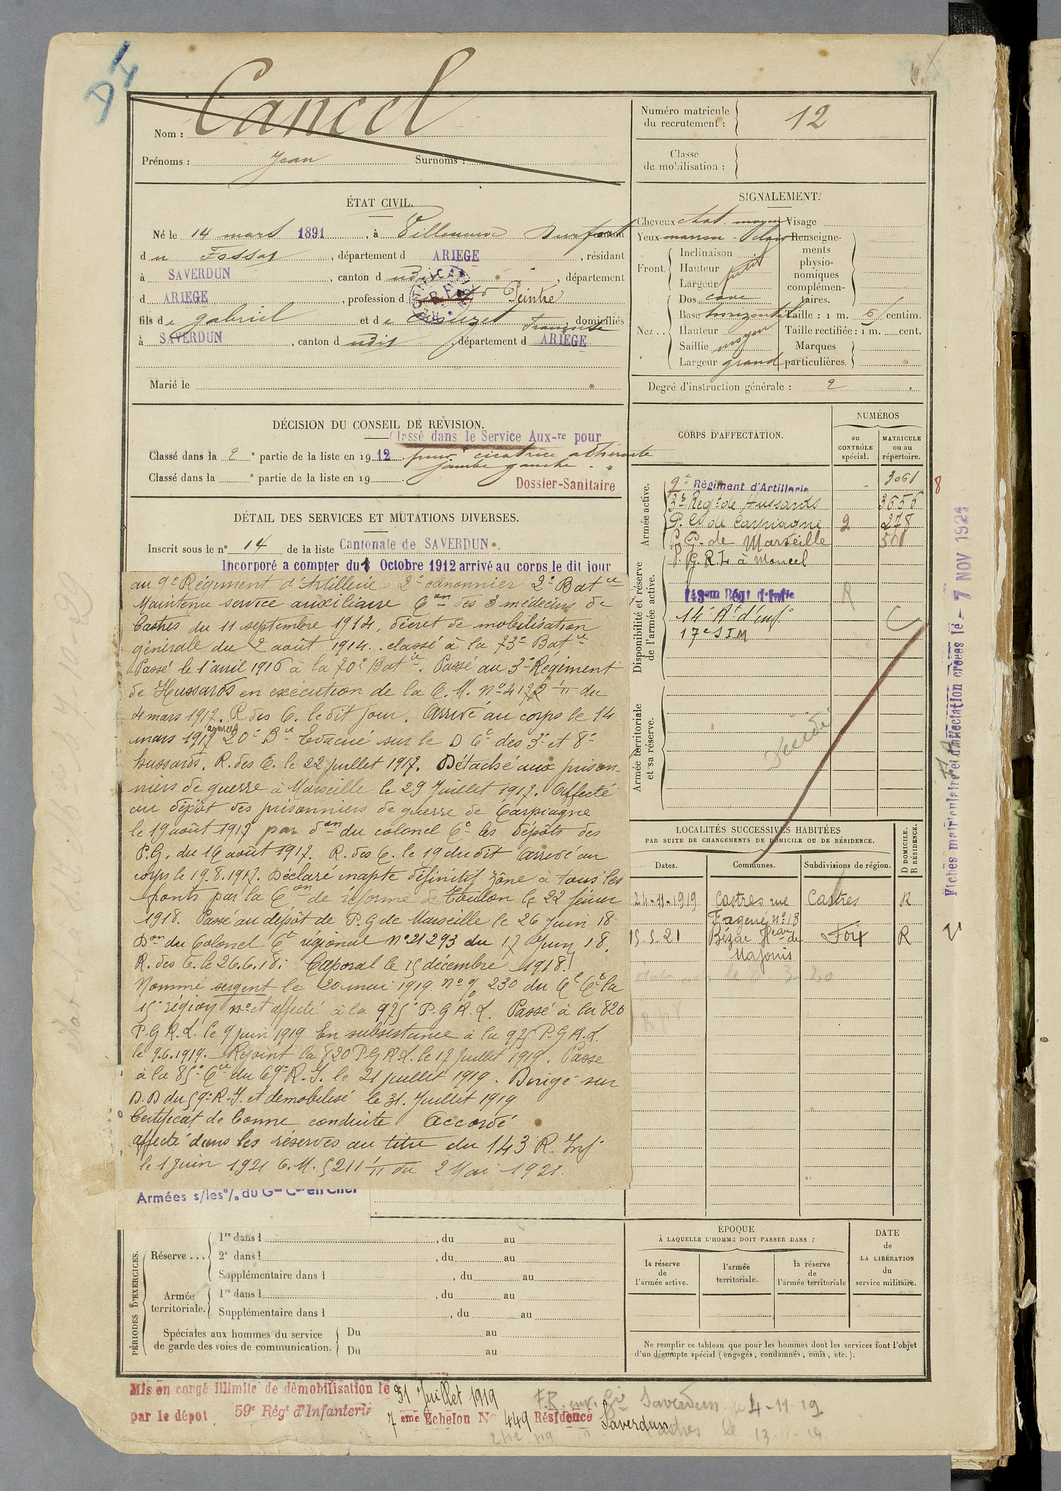 D4
Nom : Cancel
Prénoms : Jean Surnoms :
Numéro matricule du recrutement : 12
Classe de mobilisation :
ÉTAT CIVIL.
Né le 14 mars 1891, à Villeneuve Durfort canton
du Fossat, département d ARIEGE, résidant
à SAVERDUN, canton d udit, département
d ARIEGE, profession d Peintre
fils de Gabriel et de Françoise, domiciliés
à SAVERDUN, canton d udit, département d ARIEGE
Marié le
SIGNALEMENT.
Cheveux chat. moyen Visage
Yeux marron clair Renseigne-
ments
physio-
nomiques
complémen-
taires.
Front. Inclinaison
Hauteur
Largeur petit
Nez.. Dos cave
Base horizontal Taille : 1 m. centim.
Hauteur Taille rectifiée : 1 m. cent.
Saillie moyen Marques
Largeur grand particulières.
Degré d'instruction générale : 2
DÉCISION DU CONSEIL DE RÉVISION.
Classé dans le Service Aux-re pour
Classé dans la 2e partie de la liste en 1912 pour cicatrice adhérente
jambe gauche
Classé dans la e partie de la liste en 19
Dossier-Sanitaire
DÉTAIL DES SERVICES ET MUTATIONS DIVERSES.
Inscrit sous le n° 14 de la liste Cantonale de SAVERDUN
Incorporé a compter du 8 Octobre 1912 arrivé au corps le dit jour
au 9e Régiment d'Artillerie 2e canonnier 2e Batie
Maintenu service auxiliaire Con des 3 médecins de
Castres du 11 septembre 1914 décret de mobilisation
générale du 2 août 1914. classé à la 73e Batie
Passé le 1er avril 1916 à la 70e Batie. Passé au 3e Régiment
de Hussards en exécution de la C. M. n° 4172 du
4 mars 1917. R des C. le dit jour. Arrivé au corps le 14
mars 1917 Evacué sur le D Ce des 3e et 8e
hussards. R. des C. le 22 juillet 1917. Détaché aux prison-
niers de guerre à Marseille le 29 Juillet 1917. Affecté
au dépôt des prisonniers de guerre de Carpiagne
le 19 août 1917 par don du colonel Ct les dépôts des
P.G. du 16 août 1917. R. des C. le 19 dudit arrivé au
corps le 19.8.1917. Déclaré inapte définitif zône à tous les
fronts par la Con de réforme de Toulon le 22 février
1918. Passé au dépôt de P.G de Marseille le 26 Juin 18
Don du Colonel Ct régional n° 21293 du 17 Juin 18.
R. des C. le 26.6.18. Caporal le 15 décembre 1918.
Nommé sergent le 20 mai 1919 n° 230 du Gl Ct la
15e région et affecté à la 975e P.G R.L. Passé à la 820
P.G R.L. le 9 juin 1919 En subsistance à la 975 P.G R.L.
le 9.6.1919. Rejoint la 820 P G R L le 18 juillet 1919. Passé
à la 85e Cie du R.I. le 21 juillet 1919. Dirigé sur
D.D du 59e R.I. et démobilisé le 31 Juillet 1919
Certificat de bonne conduite Accordé
affecté dans les réserves au titre du 143 R. Inf
le 1 Juin 1921 C.M. 5211 du 2 Mai 1921.
Armées s/les o/o du Gal Ct en Chef
CORPS D'AFFECTATION.
NUMÉROS
au CONTRÔLE spécial.
MATRICULE ou au répertoire.
Armée active.
9e Régiment d'Artillerie 3061
3e Regt de Hussards 3656
P. G. de Carpiagne 2 278
P. G. de Marseille
P. G. R. L. à
Disponibilité et réserve de l'armée active.
143eme Régt d'Inftie R
14e Rt d'Inf
17e SIM
Armée territoriale et sa réserve.
8
Fiches matriculaire et d'affectation créées le - 7 NOV 1921
LOCALITÉS SUCCESSIVES HABITÉES
PAR SUITE DE CHANGEMENTS DE DOMICILE OU DE RÉSIDENCE.
Dates. Communes. Subdivisions de région. D DOMICILE. R RÉSIDENCE.
21-11-1919 Castres rue Castres R
n° 18
15.5.21 Foix R
PÉRIODES D'EXERCICES.
Réserve ... 1re dans l , du au
2e dans l , du au
Supplémentaire dans l , du au
Armée territoriale. 1re dans l , du au
Supplémentaire dans l , du au
Spéciales aux hommes du service Du au
de garde des voies de communication. Du au
EPOQUE
À LAQUELLE L'HOMME DOIT PASSER DANS :
la réserve de l'armée active.
l'armée territoriale.
la réserve de l'armée territoriale
DATE de LA LIBÉRATION du service militaire.
Ne remplir ce tableau que pour les hommes dont les services font l'objet
d'un décompte spécial (engagés, condamnés, omis, etc.).
Mis en congé illimité de démobilisation le 31 Juillet 1919
par le dépôt 59e Régt d'Infanterie 7eme Echelon N° 449 Résidence Saverdun
Saverdun 4-11-19
Castres le 13